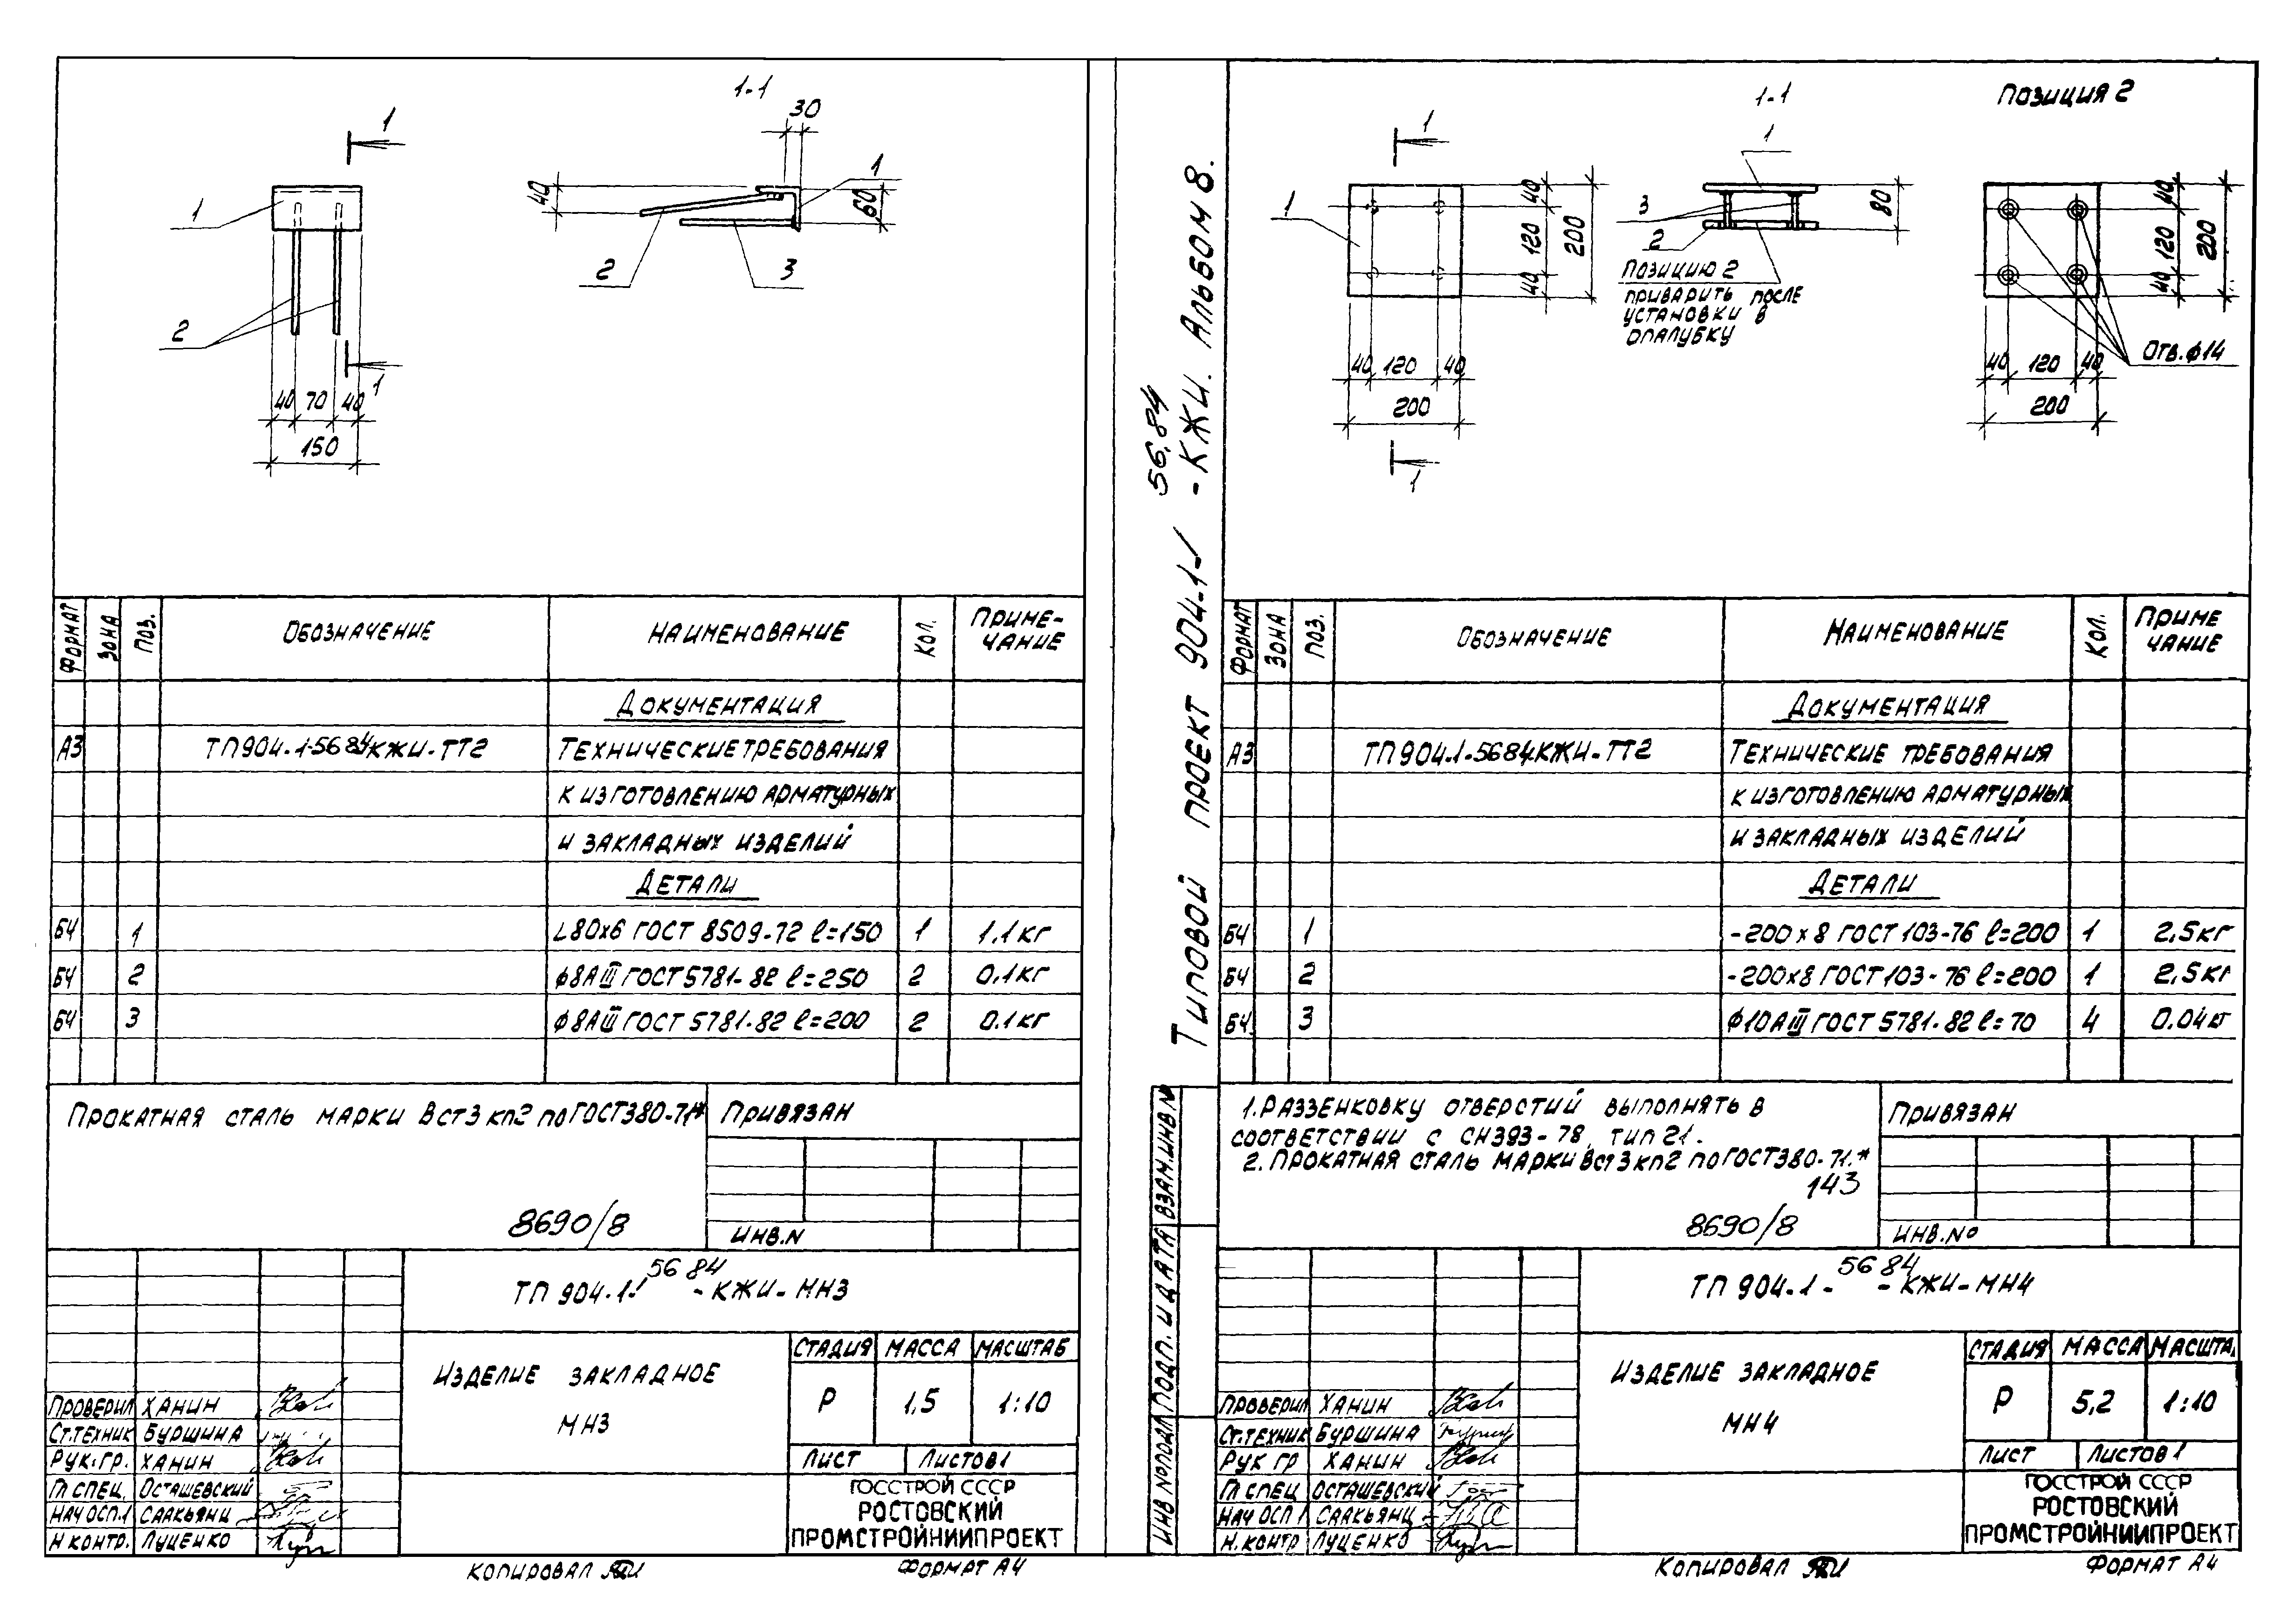 1-1
1
30
1
40
60
1
2
3
2
1
40 70 40
150
ФОРМАТ ЗОНА ПОЗ. ОБОЗНАЧЕНИЕ НАИМЕНОВАНИЕ КОЛ. ПРИМЕ-
ЧАНИЕ
ДОКУМЕНТАЦИЯ
А3 ТП904-1-56 84КЖИ-ТТ2 ТЕХНИЧЕСКИЕ ТРЕБОВАНИЯ
К ИЗГОТОВЛЕНИЮ АРМАТУРНЫХ
И ЗАКЛАДНЫХ ИЗДЕЛИЙ
ДЕТАЛИ
БЧ 1 L80х6 ГОСТ 8509-72 ℓ=150 1 1.1кг
БЧ 2 ф8АIII ГОСТ 5781-82 ℓ=250 2 0.1кг
БЧ 3 ф8АIII ГОСТ 5781-82 ℓ=200 2 0.1кг
ПРОКАТНАЯ СТАЛЬ МАРКИ ВСт3кп2 по ГОСТ380-71*
ПРИВЯЗАН
8690/8
ИНВ.N
56 84
ТП 904-1- -КЖИ-МН3
ИЗДЕЛИЕ ЗАКЛАДНОЕ
МН3
СТАДИЯ МАССА МАСШТАБ
Р 1,5 1:10
ЛИСТ ЛИСТОВ1
ПРОВЕРИЛ ХАНИН
СТ.ТЕХНИК БУРШИНА
РУК.ГР. ХАНИН
ГЛ СПЕЦ. ОСТАШЕВСКИЙ
НАЧ ОСП.1 СААКЬЯНЦ
Н КОНТР. ЛУЦЕНКО
ГОССТРОЙ СССР
РОСТОВСКИЙ
ПРОМСТРОЙНИИПРОЕКТ
КОПИРОВАЛ
ФОРМАТ А4
56.84
ТИПОВОЙ ПРОЕКТ 904-1-/ -КЖИ. АЛЬБОМ 8.
1-1
ПОЗИЦИЯ 2
1
1
1
40
120
40
200
3
2
80
ПОЗИЦИЮ 2
ПРИВАРИТЬ ПОСЛЕ
УСТАНОВКИ В
ОПАЛУБКУ
40 120 40
200
1
40
120
40
200
ОТВ. ф14
40 120 40
200
ФОРМАТ ЗОНА ПОЗ. ОБОЗНАЧЕНИЕ НАИМЕНОВАНИЕ КОЛ. ПРИМЕ
ЧАНИЕ
ДОКУМЕНТАЦИЯ
А3 ТП904-1-5684КЖИ-ТТ2 ТЕХНИЧЕСКИЕ ТРЕБОВАНИЯ
К ИЗГОТОВЛЕНИЮ АРМАТУРНЫХ
И ЗАКЛАДНЫХ ИЗДЕЛИЙ
ДЕТАЛИ
БЧ 1 -200х8 ГОСТ 103-76 ℓ=200 1 2,5кг
БЧ 2 -200х8 ГОСТ 103-76 ℓ=200 1 2,5кг
БЧ. 3 ф10АIII ГОСТ 5781-82 ℓ=70 4 0.04кг
1. РАЗЗЕНКОВКУ ОТВЕРСТИЙ ВЫПОЛНЯТЬ В
СООТВЕТСТВИИ С СН393-78, ТИП 21.
2. ПРОКАТНАЯ СТАЛЬ МАРКИ ВСт3кп2 по ГОСТ380-71.*
143
8690/8
ПРИВЯЗАН
ИНВ.No
ИНВ №ПОДЛ ПОДП. И ДАТА ВЗАМ.ИНВ.N
56 84
ТП 904-1- -КЖИ-МН4
ИЗДЕЛИЕ ЗАКЛАДНОЕ
МН4
СТАДИЯ МАССА МАСШТА.
Р 5,2 1:10
ЛИСТ ЛИСТОВ 1
ПРОВЕРИЛ ХАНИН
СТ.ТЕХНИК БУРШИНА
РУК ГР ХАНИН
ГЛ СПЕЦ ОСТАШЕВСКИЙ
НАЧ ОСП 1 СААКЬЯНЦ
Н.КОНТР ЛУЦЕНКО
ГОССТРОЙ СССР
РОСТОВСКИЙ
ПРОМСТРОЙНИИПРОЕКТ
КОПИРОВАЛ
ФОРМАТ А4